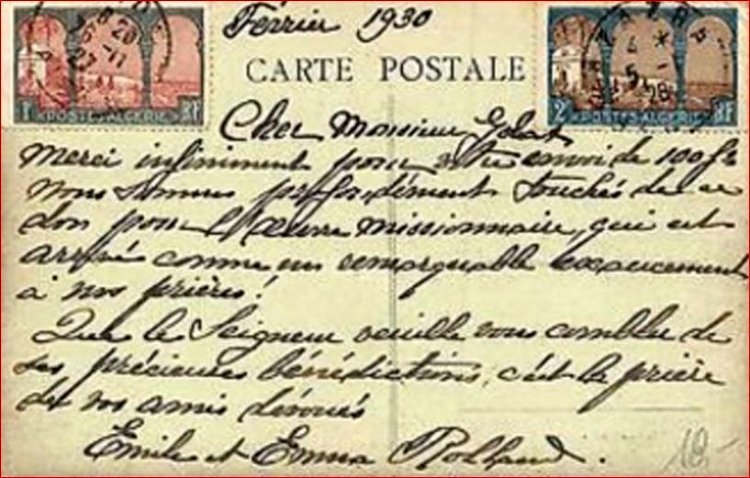 Février 1930
CARTE POSTALE
1F POSTES ALGERIE RF
2F POSTES ALGERIE RF
Cher Monsieur
Merci infiniment pour votre envoi de 100 frs
Nous sommes profondément touchés de ce
don pour l'Œuvre missionnaire, qui est
arrivé comme un remarquable exaucement
à nos prières!
Que le Seigneur veuille vous combler de
ses précieuses bénédictions, c'est la prière
de vos amis dévoués
Emile et Emma Rolland.
10-